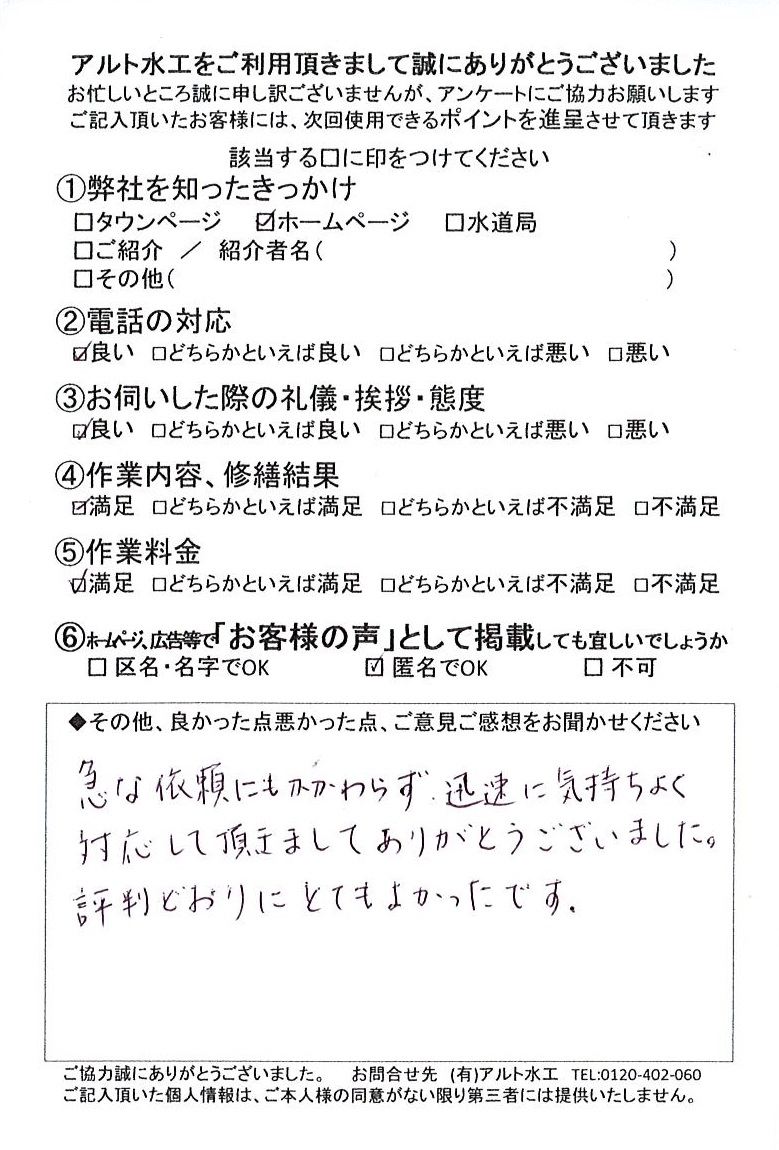 アルト水工をご利用頂きまして誠にありがとうございました
お忙しいところ誠に申し訳ございませんが、アンケートにご協力お願いします
ご記入頂いたお客様には、次回使用できるポイントを進呈させて頂きます
該当する□に印をつけてください
①弊社を知ったきっかけ
□タウンページ ☑ホームページ □水道局
□ご紹介 ／ 紹介者名( )
□その他( )
②電話の対応
☑良い □どちらかといえば良い □どちらかといえば悪い □悪い
③お伺いした際の礼儀・挨拶・態度
☑良い □どちらかといえば良い □どちらかといえば悪い □悪い
④作業内容、修繕結果
☑満足 □どちらかといえば満足 □どちらかといえば不満足 □不満足
⑤作業料金
☑満足 □どちらかといえば満足 □どちらかといえば不満足 □不満足
⑥ホームページ、広告等で「お客様の声」として掲載しても宜しいでしょうか
□ 区名・名字でOK ☑ 匿名でOK □ 不可
◆その他、良かった点悪かった点、ご意見ご感想をお聞かせください
急な依頼にもかかわらず、迅速に気持ちよく
対応して頂きましてありがとうございました。
評判どおりにとてもよかったです。
ご協力誠にありがとうございました。 お問合せ先 (有)アルト水工 TEL:0120-402-060
ご記入頂いた個人情報は、ご本人様の同意がない限り第三者には提供いたしません。